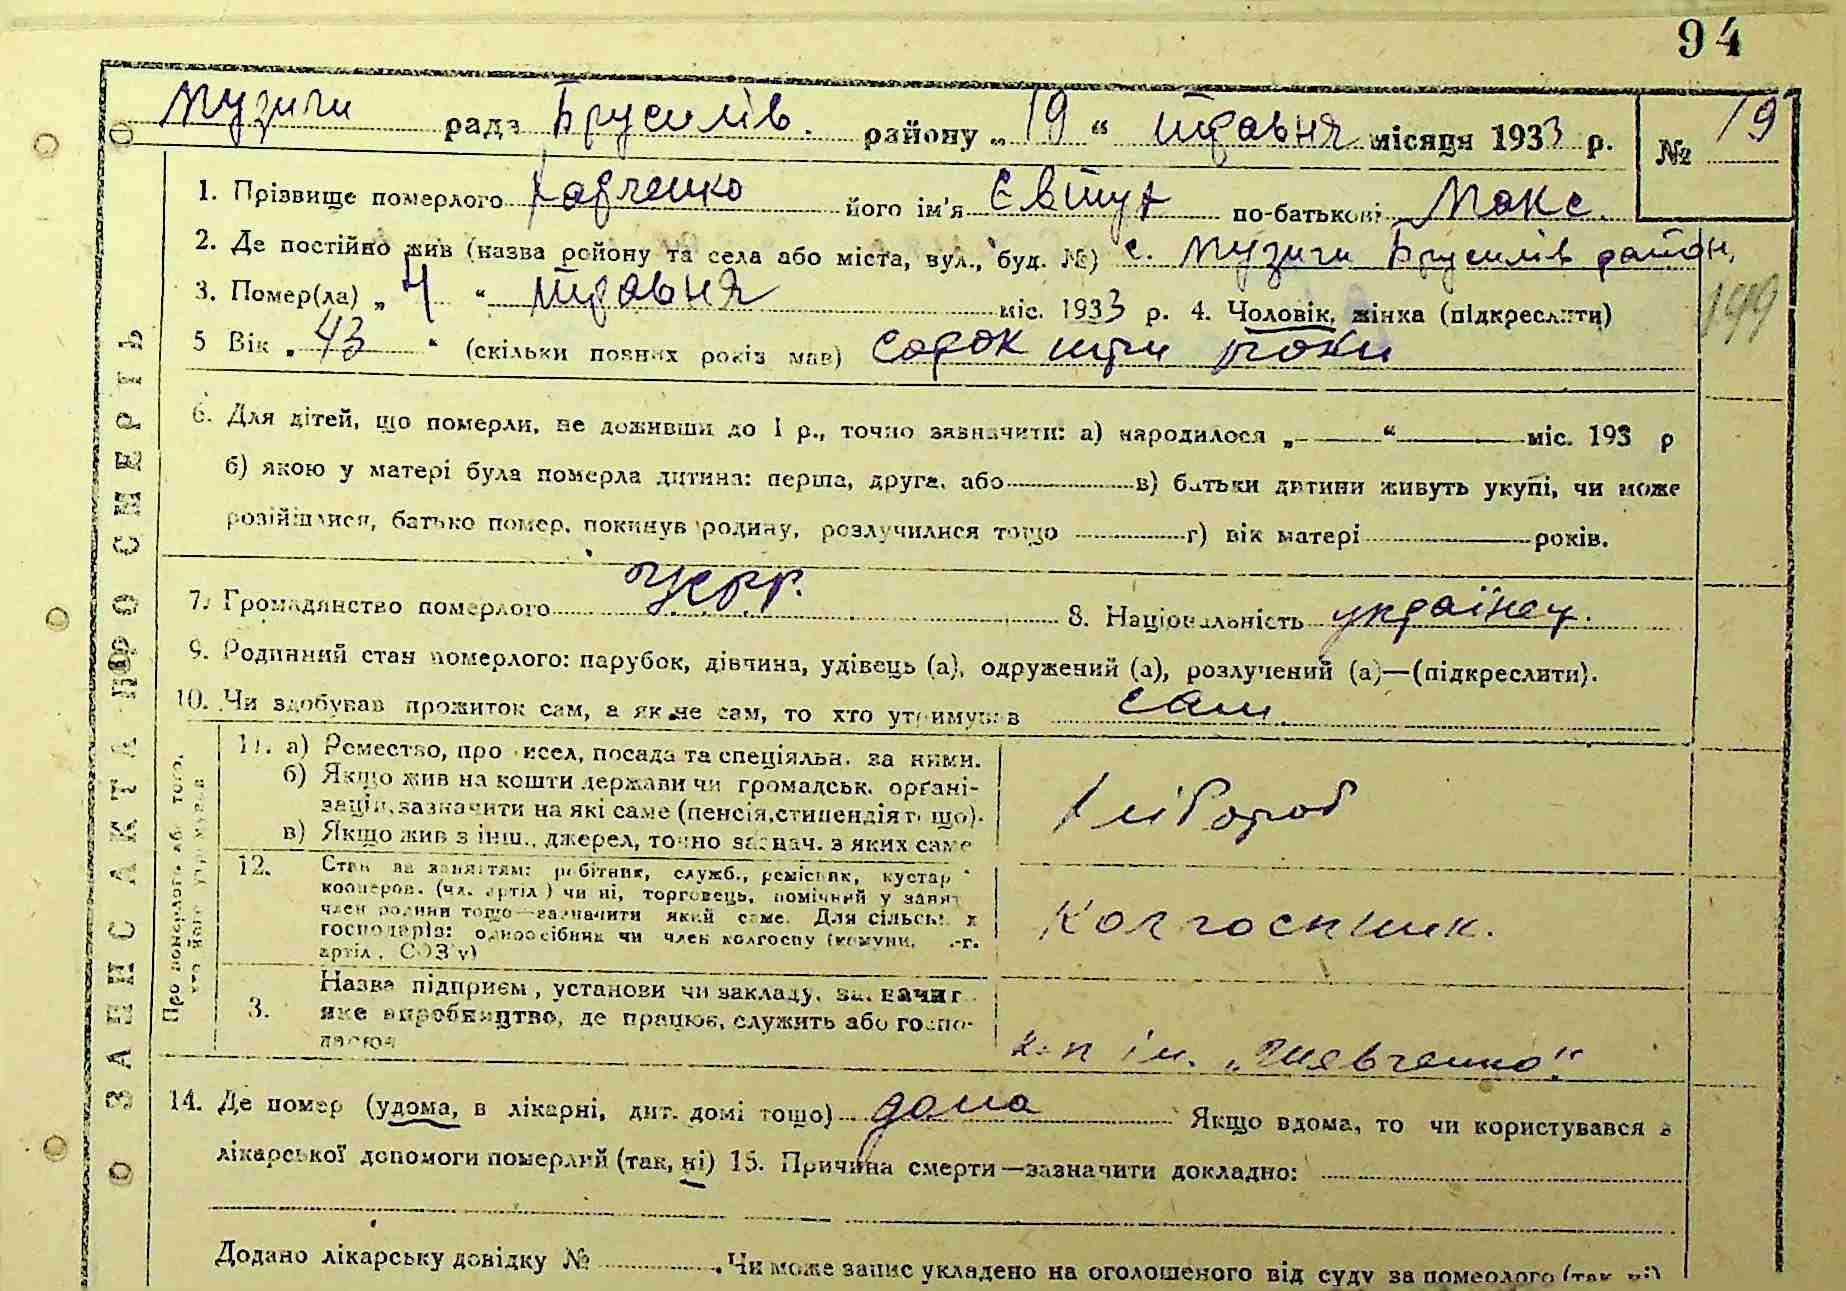 94
Музичи рада Брусилів. району „19“ травня місяця 1933 р. № 19
1. Прізвище померлого Харченко його ім'я Євтух по-батькові Макс.
2. Де постійно жив (назва району та села або міста, вул., буд. №) с. Музичи Брусилів район,
3. Помер(ла) „4“ травня міс. 1933 р. 4. Чоловік, жінка (підкреслити)
199
5 Вік „43“ (скільки повних років мав) сорок три роки
6. Для дітей, що померли, не доживши до 1 р., точно зазначити: а) народилося „—“ — міс. 193 р
б) якою у матері була померла дитина: перша, друга, або — в) батьки дитини живуть укупі, чи може
розійшлися, батько помер, покинув родину, розлучилися тощо — г) вік матері — років.
7. Громадянство померлого УСРР. 8. Національність українец.
9. Родинний стан померлого: парубок, дівчина, удівець (а), одружений (а), розлучений (а)—(підкреслити).
10. Чи здобував прожиток сам, а як не сам, то хто утримував сам.
11. а) Ремество, промисел, посада та спеціяльн. за ними.
б) Якщо жив на кошти держави чи громадськ. орґані-
зацій, зазначити на які саме (пенсія, стипендія тощо).
в) Якщо жив з інш., джерел, точно зазнач. з яких саме
Хлібороб
12. Стан за заняттям: робітник, служб., ремісник, кустар
кооперов. (чл. артіл) чи ні, торговець, помічний у занят
член родини тощо—зазначити який саме. Для сільськ х
господарів: одноосібник чи член колгоспу (комуни, .-г.
артіл, СОЗ'у)
Колгоспник.
3. Назва підприєм, установи чи закладу, зазначит
яке виробництво, де працює, служить або госпо-
дарює
к-п ім. „Шевченко“.
14. Де помер (удома, в лікарні, дит. домі тощо) дома Якщо вдома, то чи користувався з
лікарської допомоги померлий (так, ні) 15. Причина смерти—зазначити докладно:
Додано лікарську довідку № . Чи може запис укладено на оголошеного від суду за померлого (так, ні)
О ЗАПИС АКТА ПРО СМЕРТЬ О
Про померлого або того,
хто його утримував